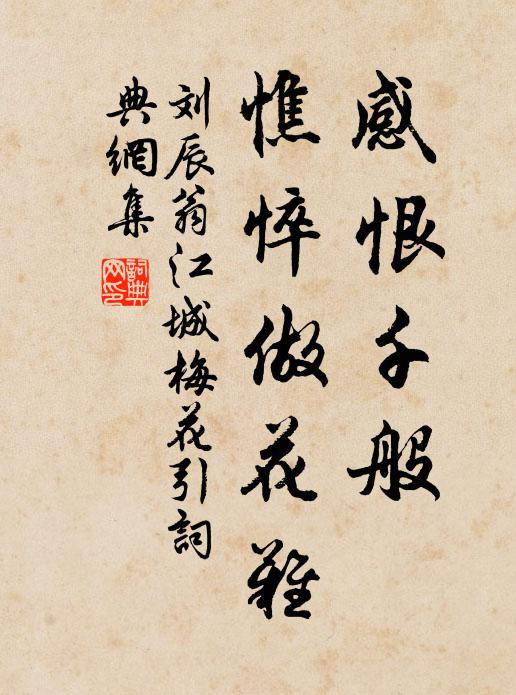 感恨千般
憔悴做花難
刘辰翁江城梅花引詞
典網集
詞典網印